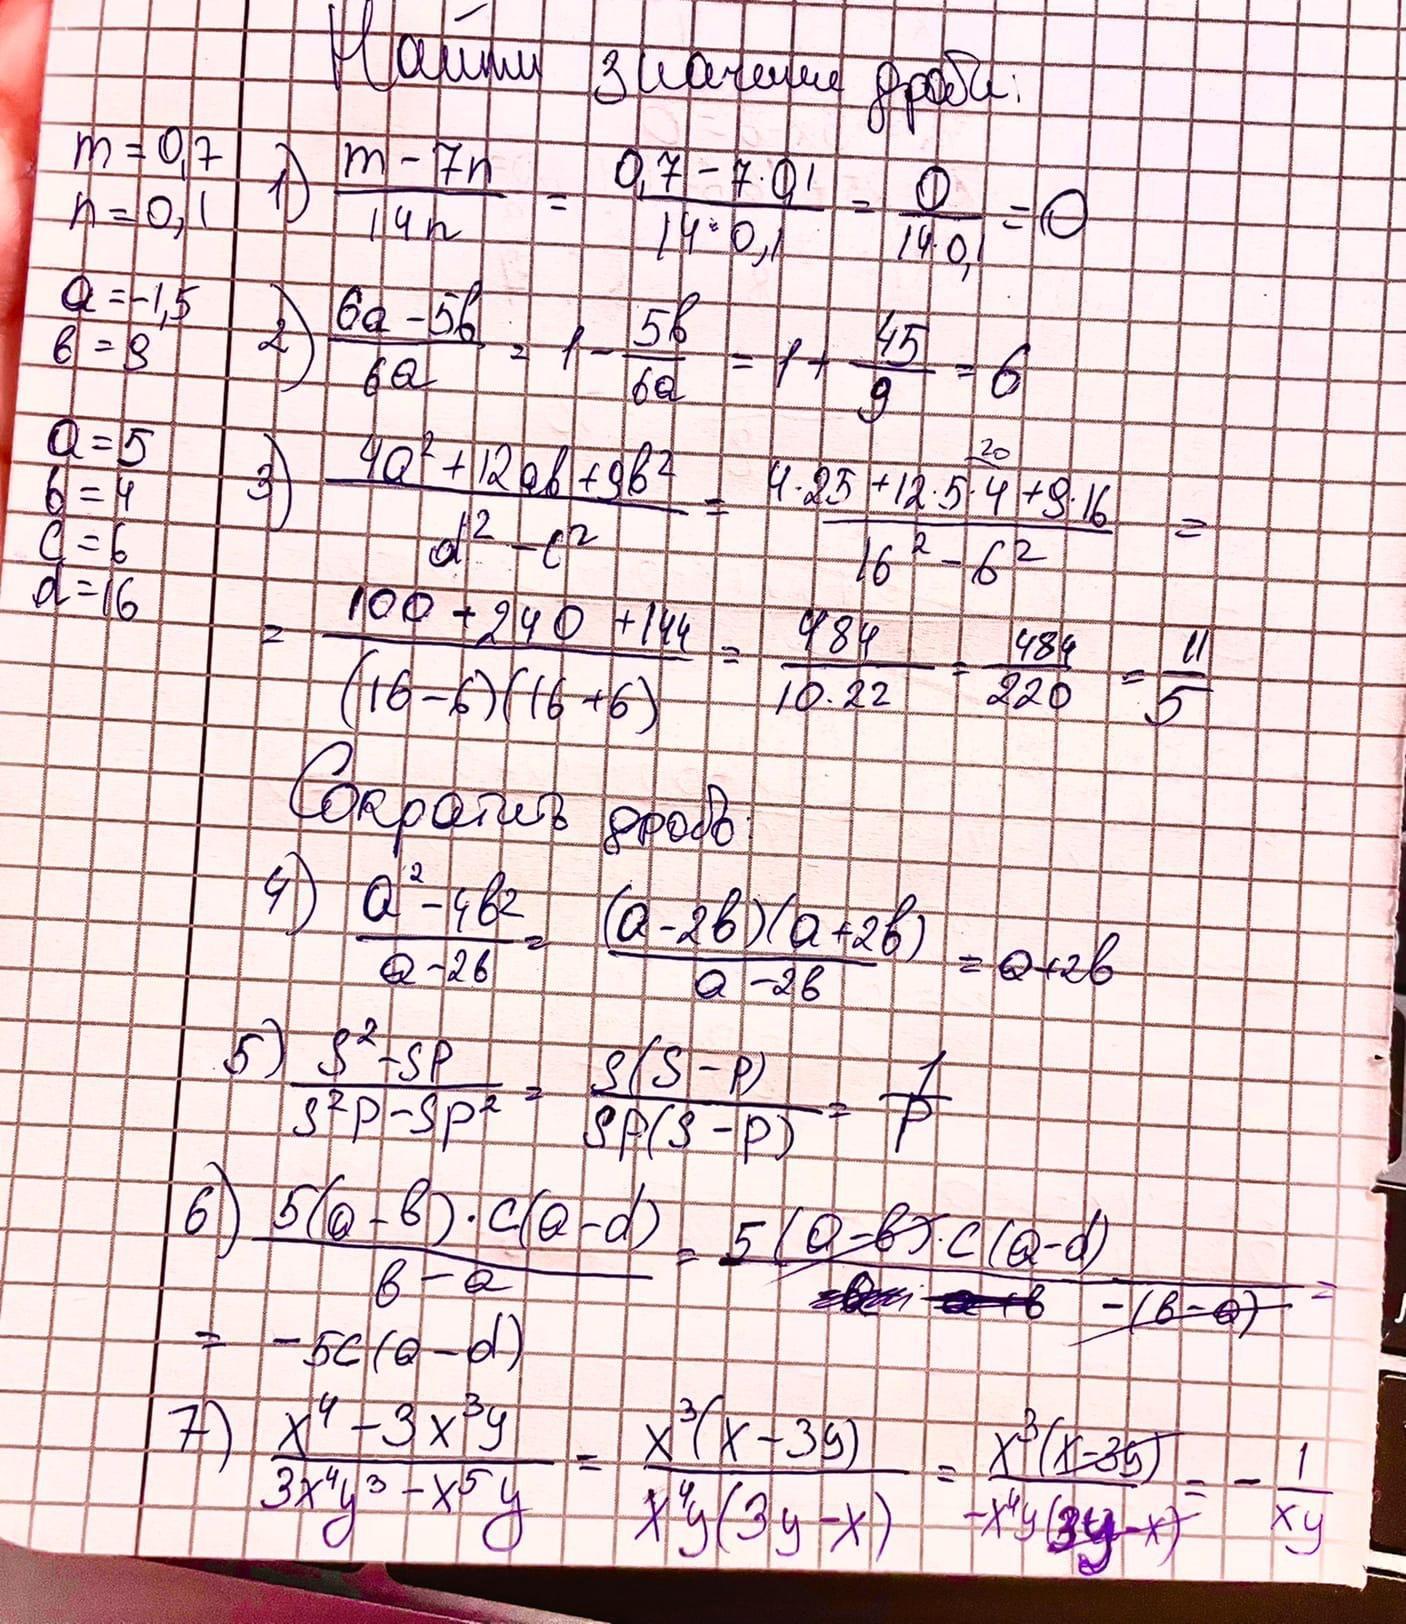 Найти значение дроби:
m = 0,7
n = 0,1
1) (m - 7n)/(14n) = (0,7 - 7·0,1)/(14·0,1) = 0/(14·0,1) = 0
a = -1,5
в = 9
2) (6a - 5в)/(6a) = 1 - 5в/6a = 1 + 45/9 = 6
a = 5
в = 4
c = 6
d = 16
3) (4a² + 12aв + 9в²)/(d² - c²) = (4·25 + 12·5·4 + 9·16)/(16² - 6²) =
20
= (100 + 240 + 144)/((16 - 6)(16 + 6)) = 484/(10·22) = 484/220 = 11/5
Сократить дробь:
4) (a² - 4в²)/(a - 2в) = ((a - 2в)(a + 2в))/(a - 2в) = a + 2в
5) (S² - SP)/(S²P - SP²) = (S(S - P))/(SP(S - P)) = 1/P
6) (5(a - в)·c(a - d))/(в - a) = (5(a - в)·c(a - d))/(-(в - a)) =
= -5c(a - d)
7) (x⁴ - 3x³y)/(3x⁴y³ - x⁵y) = (x³(x - 3y))/(x⁴y(3y - x)) = (x³(x - 3y))/(-x⁴y(3y - x)) = - 1/xy